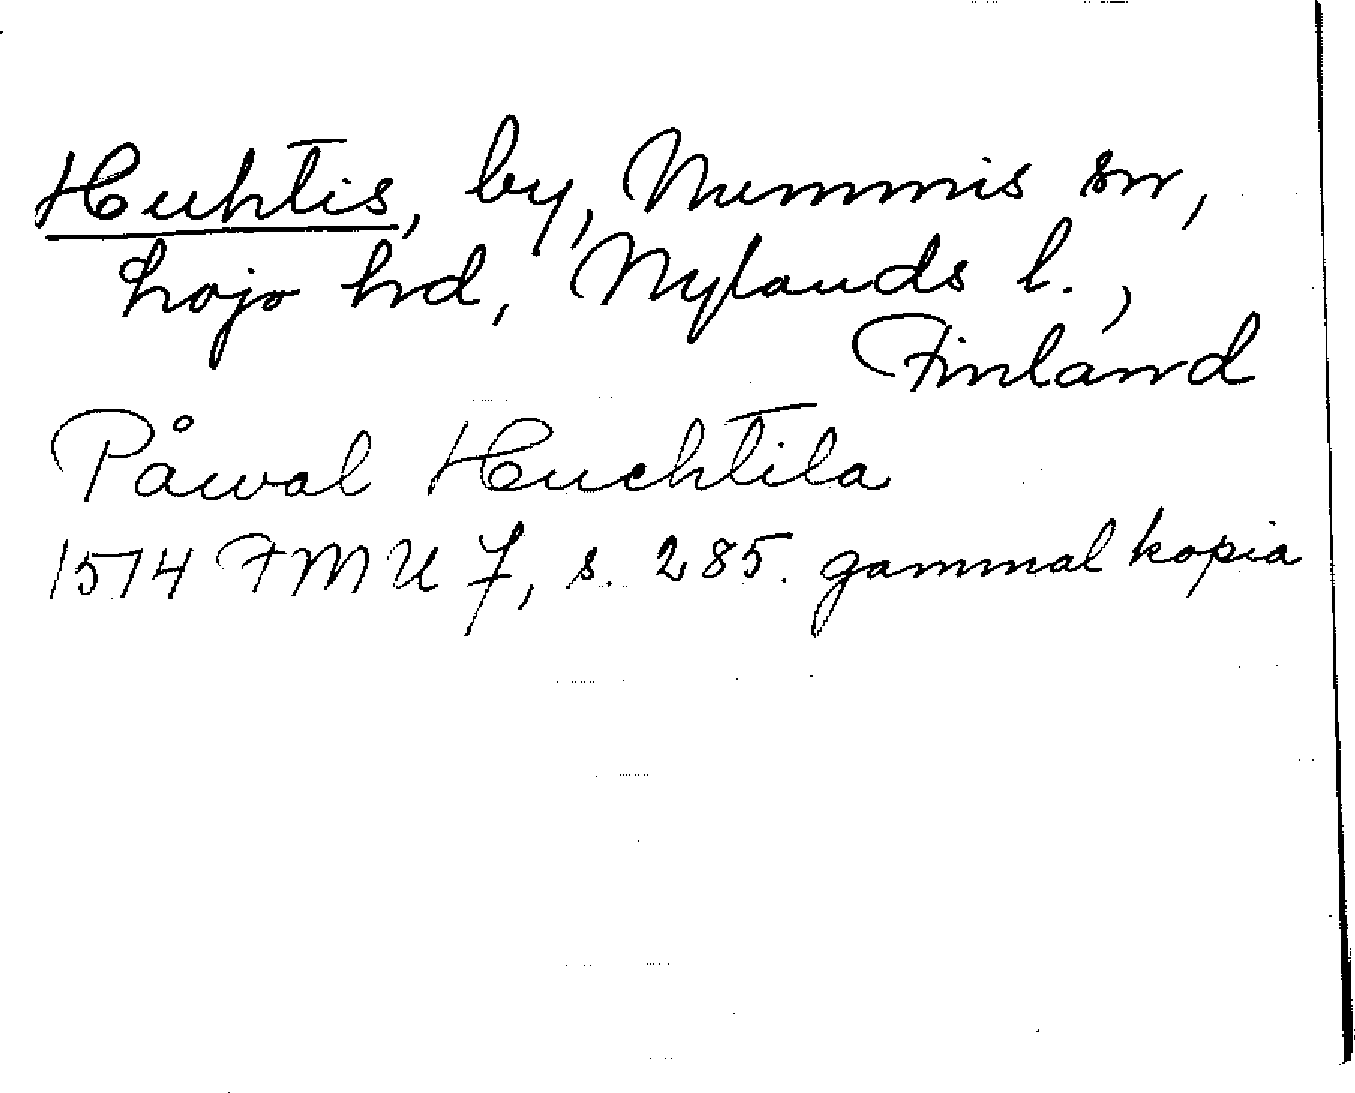 Huhtis, by, Nummis sn,
Lojo hrd, Nylands l.,
Finland
Påwal Huchtila
1574 FMU f, s. 285. gammal kopia